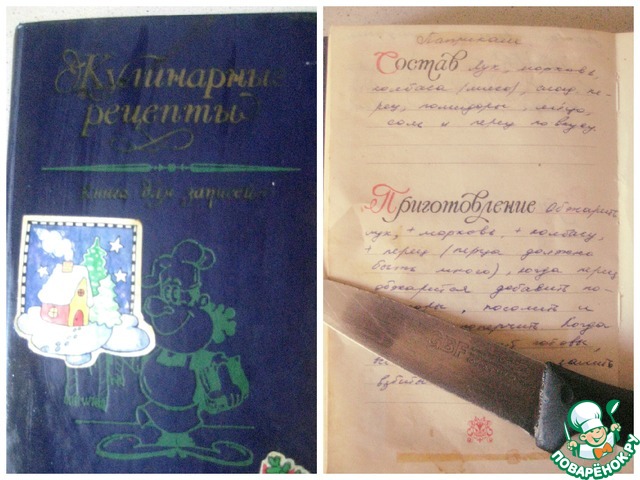 Кулинарные
рецепты
Книга для записей
Паприкаш
Состав лук, морковь,
колбаса (мясо), слад. пе-
рец, помидоры, яйца,
соль и перец по вкусу
Приготовление Обжарить
лук, + морковь, + колбасу,
+ перец (перца должно
быть много), когда перец
обжарится добавить по-
посолить и
поперчить когда
готовы,
взбиты
ПОВАРЁНОК.РУ